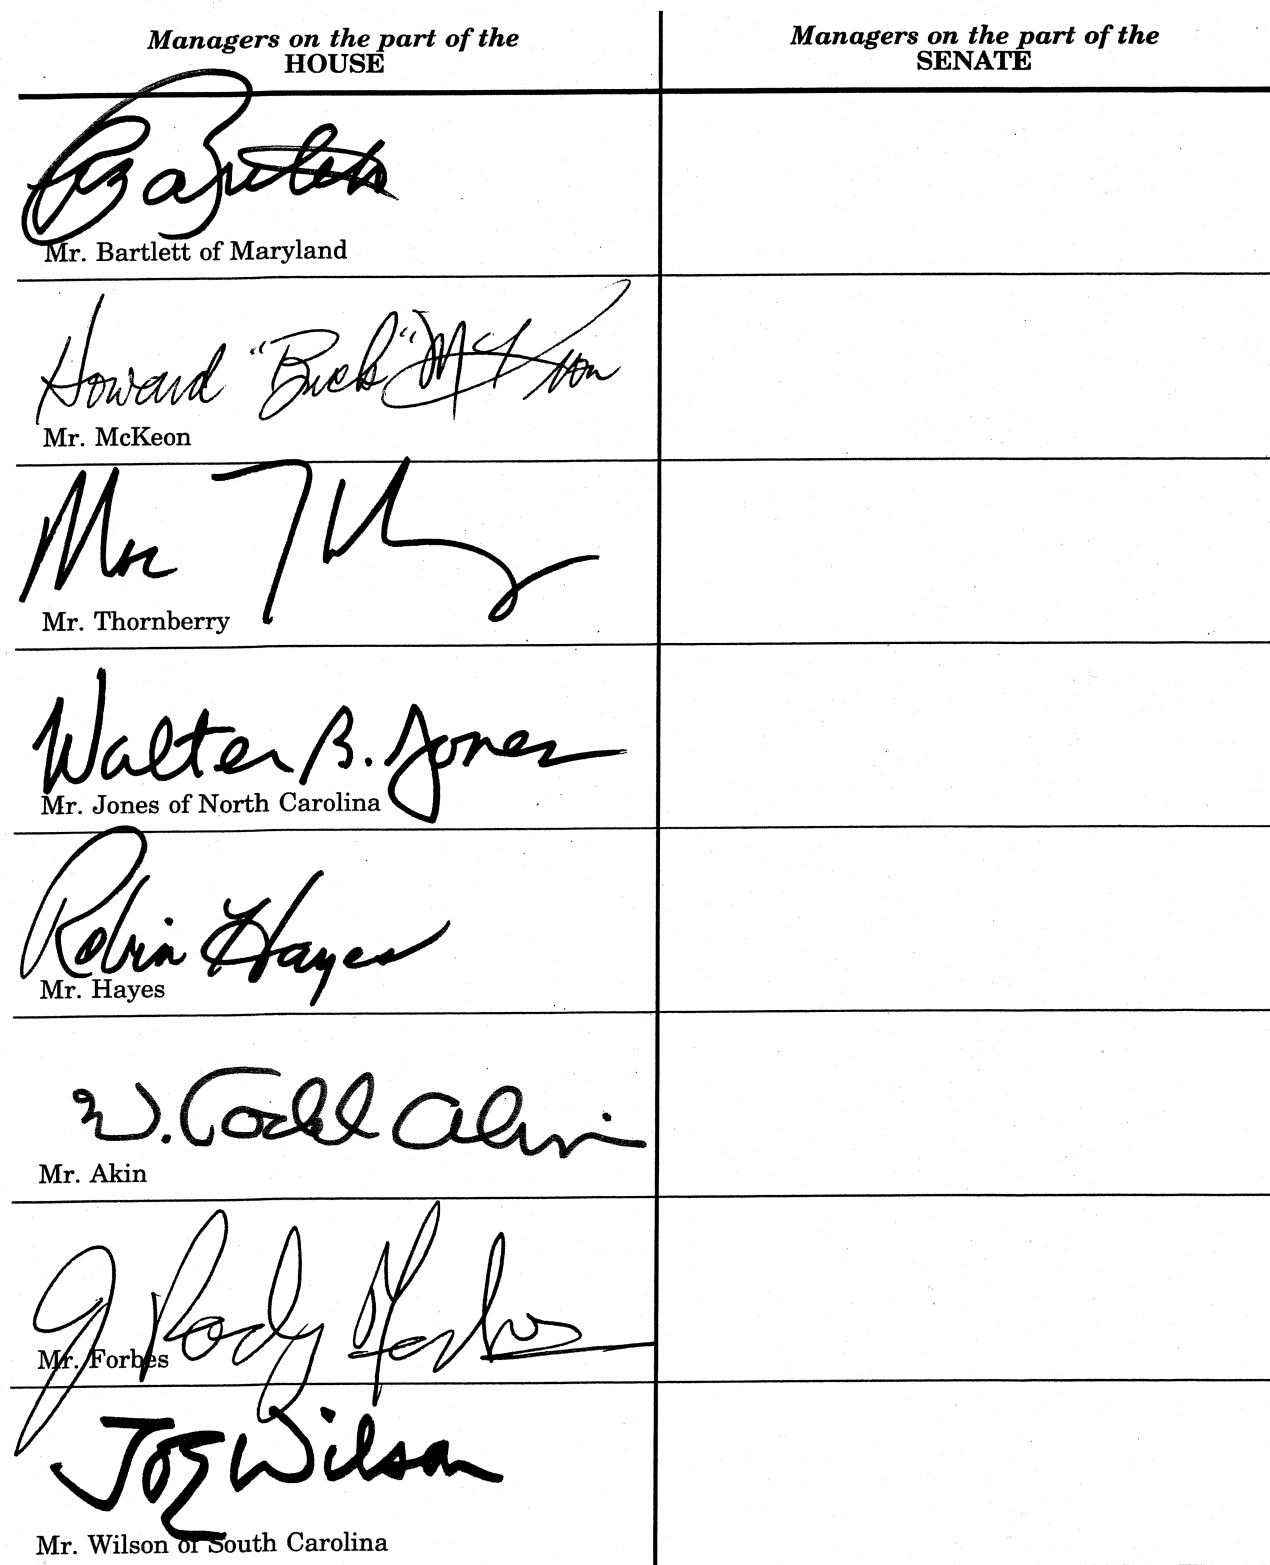 Managers on the part of the
HOUSE
Managers on the part of the
SENATE
Bartlett
Mr. Bartlett of Maryland
Howard "Buck" McKeon
Mr. McKeon
Mac
Mr. Thornberry
Walter B. Jones
Mr. Jones of North Carolina
Robin Hayes
Mr. Hayes
W. Todd Akin
Mr. Akin
J Randy Forbes
Mr. Forbes
Joe Wilson
Mr. Wilson of South Carolina